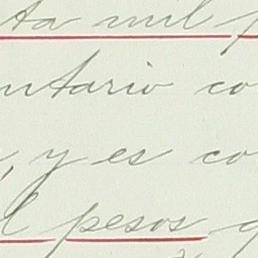 ta mil p
ntario co
, y es co
l pesos